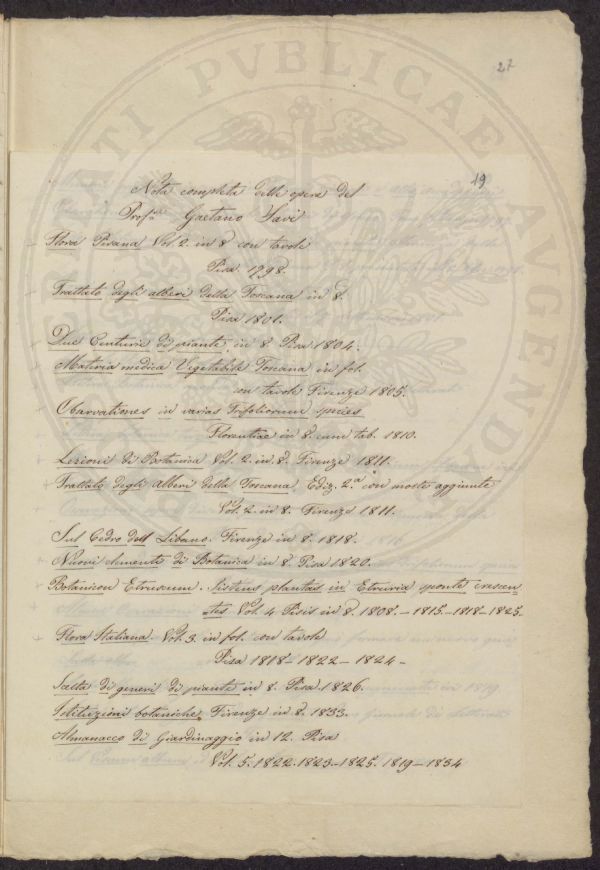 27
19
Nota completa delle opere del
Prof.re Gaetano Savi
Flora Pisana Vol. 2. in 8. con tavole
Pisa. 1798.
Trattato degli alberi della Toscana in 8.
Pisa 1801.
Due Centurie di piante, in 8. Pisa 1804.
Materia medica Vegetabile Toscana in fol.
con tavole Firenze 1805.
Observationes in varias Trifoliorum species
Florentiae in 8. cum tab. 1810.
Lezioni di Botanica Vol. 2. in 8. Firenze 1811.
Trattato degli Alberi della Toscana. Ediz. 2.a con molte aggiunte
Vol. 2. in 8. Firenze 1811.
Sul Cedro dell Libano. Firenze in 8. 1818.
Nuovi elementi di Botanica in 8. Pisa 1820.
Botanicon Etruscum. Sistens plantas in Etruria sponte crescen-
tes Vol. 4. Pisis in 8. 1808. - 1815. - 1818 - 1825.
Flora Italiana. Vol. 3. in fol. con tavole
Pisa 1818 - 1822 - 1824 -
Scelta di generi di piante in 8. Pisa. 1826.
Istituzioni botaniche. Firenze in 8. 1833.
Almanacco di Giardinaggio in 12. Pisa
Vol. 5. 1822. 1823 - 1825. 1819 - 1834
PUBLICAE
AUGENDAE